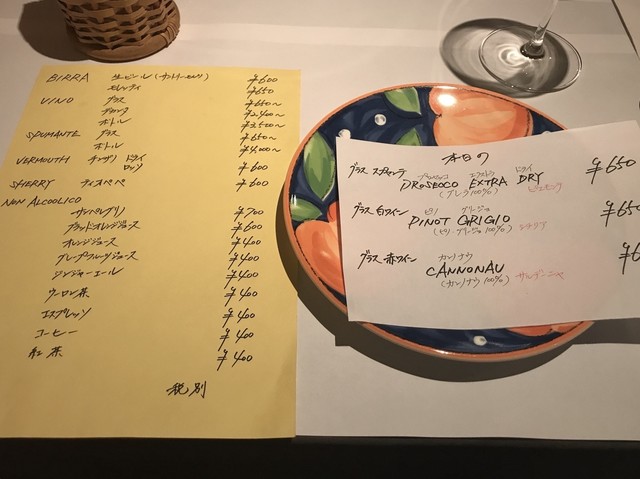 BIRRA 生ビール(サントリーモルツ) ¥600
モレッティ ¥650
VINO グラス ¥650~
デカンタ ¥2,400~
ボトル ¥3,500~
SPUMANTE グラス ¥650~
ボトル ¥4,000~
VERMOUTH チンザノ ドライ ロッソ ¥600
SHERRY ティオペペ ¥600
NON ALCOOLICO
サンペレグリノ ¥700
ブラッドオレンジジュース ¥600
オレンジジュース ¥400
グレープフルーツジュース ¥400
ジンジャーエール ¥400
ウーロン茶 ¥400
エスプレッソ ¥400
コーヒー ¥400
紅茶 ¥400
税別
本日の
グラス スプマンテ プロセッコ エクストラ ドライ ¥650
PROSECCO EXTRA DRY
(グレラ100%) ピエモンテ
グラス白ワイン ピノ グリージョ ¥650
PINOT GRIGIO
(ピノ・グリージョ100%)
グラス赤ワイン カンノナウ
CANNONAU
(カンノナウ100%) サルデーニャ